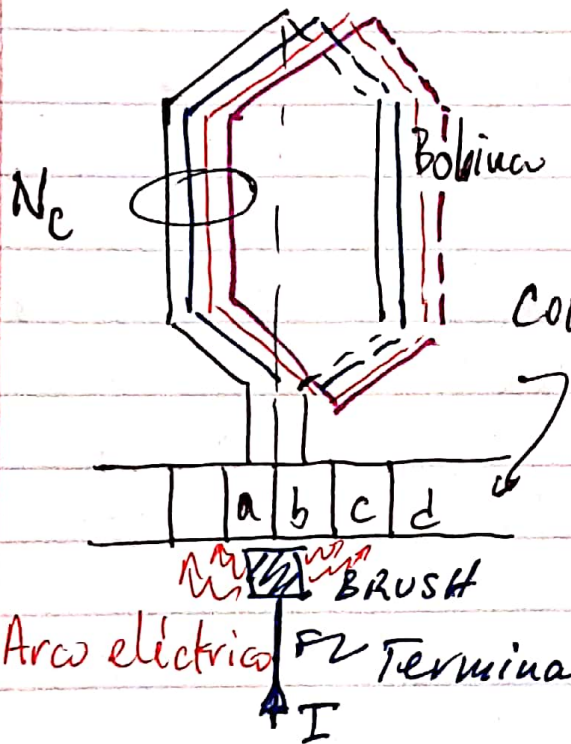 Bobina
Nc
Col
a b c d
BRUSH
Arco eléctrico
Termina
I